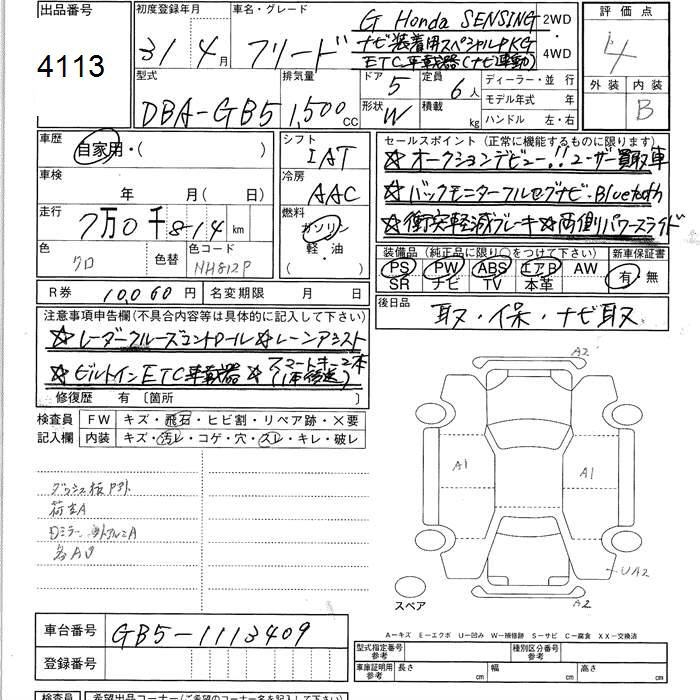 出品番号
4113
初度登録年月
31年 4月
車名・グレード
フリード
G Honda SENSING
ナビ装着用スペシャルPKG
ETC車載器(ナビ連動)
2WD
・
4WD
評価点
4
外装 内装
B
型式
DBA-GB5
排気量
1,500cc
ドア 5
形状 W
定員 6人
積載 kg
ディーラー・並行
モデル年式 年
ハンドル 左・右
車歴
自家用・( )
車検
年 月( 日)
走行
7万0千8-14 km
色 クロ
色替
色コード NH812P
シフト
IAT
冷房
AAC
燃料
ガソリン
軽・油
( )
セールスポイント(正常に機能するものに限ります)
☆オークションデビュー!!ユーザー買取車
☆バックモニターフルセグナビ・Bluetooth
☆衝突軽減ブレーキ☆両側パワースライド
装備品(純正品に限り○をつけて下さい)
PS PW ABS エアB AW
SR ナビ TV 本革
新車保証書
有・無
R券 10,060円
名変期限 月 日
後日品
取・保・ナビ取
注意事項申告欄(不具合内容等は具体的に記入して下さい)
☆レーダークルーズコントロール☆レーンアシスト
☆ビルトインETC車載器☆スマートキー2本
(1本後送)
修復歴 有〔箇所 〕
検査員
記入欄
FW キズ・飛石・ヒビ割・リペア跡・×要
内装 キズ・汚レ・コゲ・穴・スレ・キレ・破レ
荷室A
A2
A1
A1
UA2
A2
スペア
車台番号 GB5-1113409
登録番号
A－キズ E－エクボ U－凹み W－補修跡 S－サビ C－腐食 XX－交換済
型式指定番号
参考
種別区分番号
参考
車庫証明用
参考
長さ cm
幅 cm
高さ cm
検査員
希望出品コーナー(ご希望のコーナー名を記入して下さい)